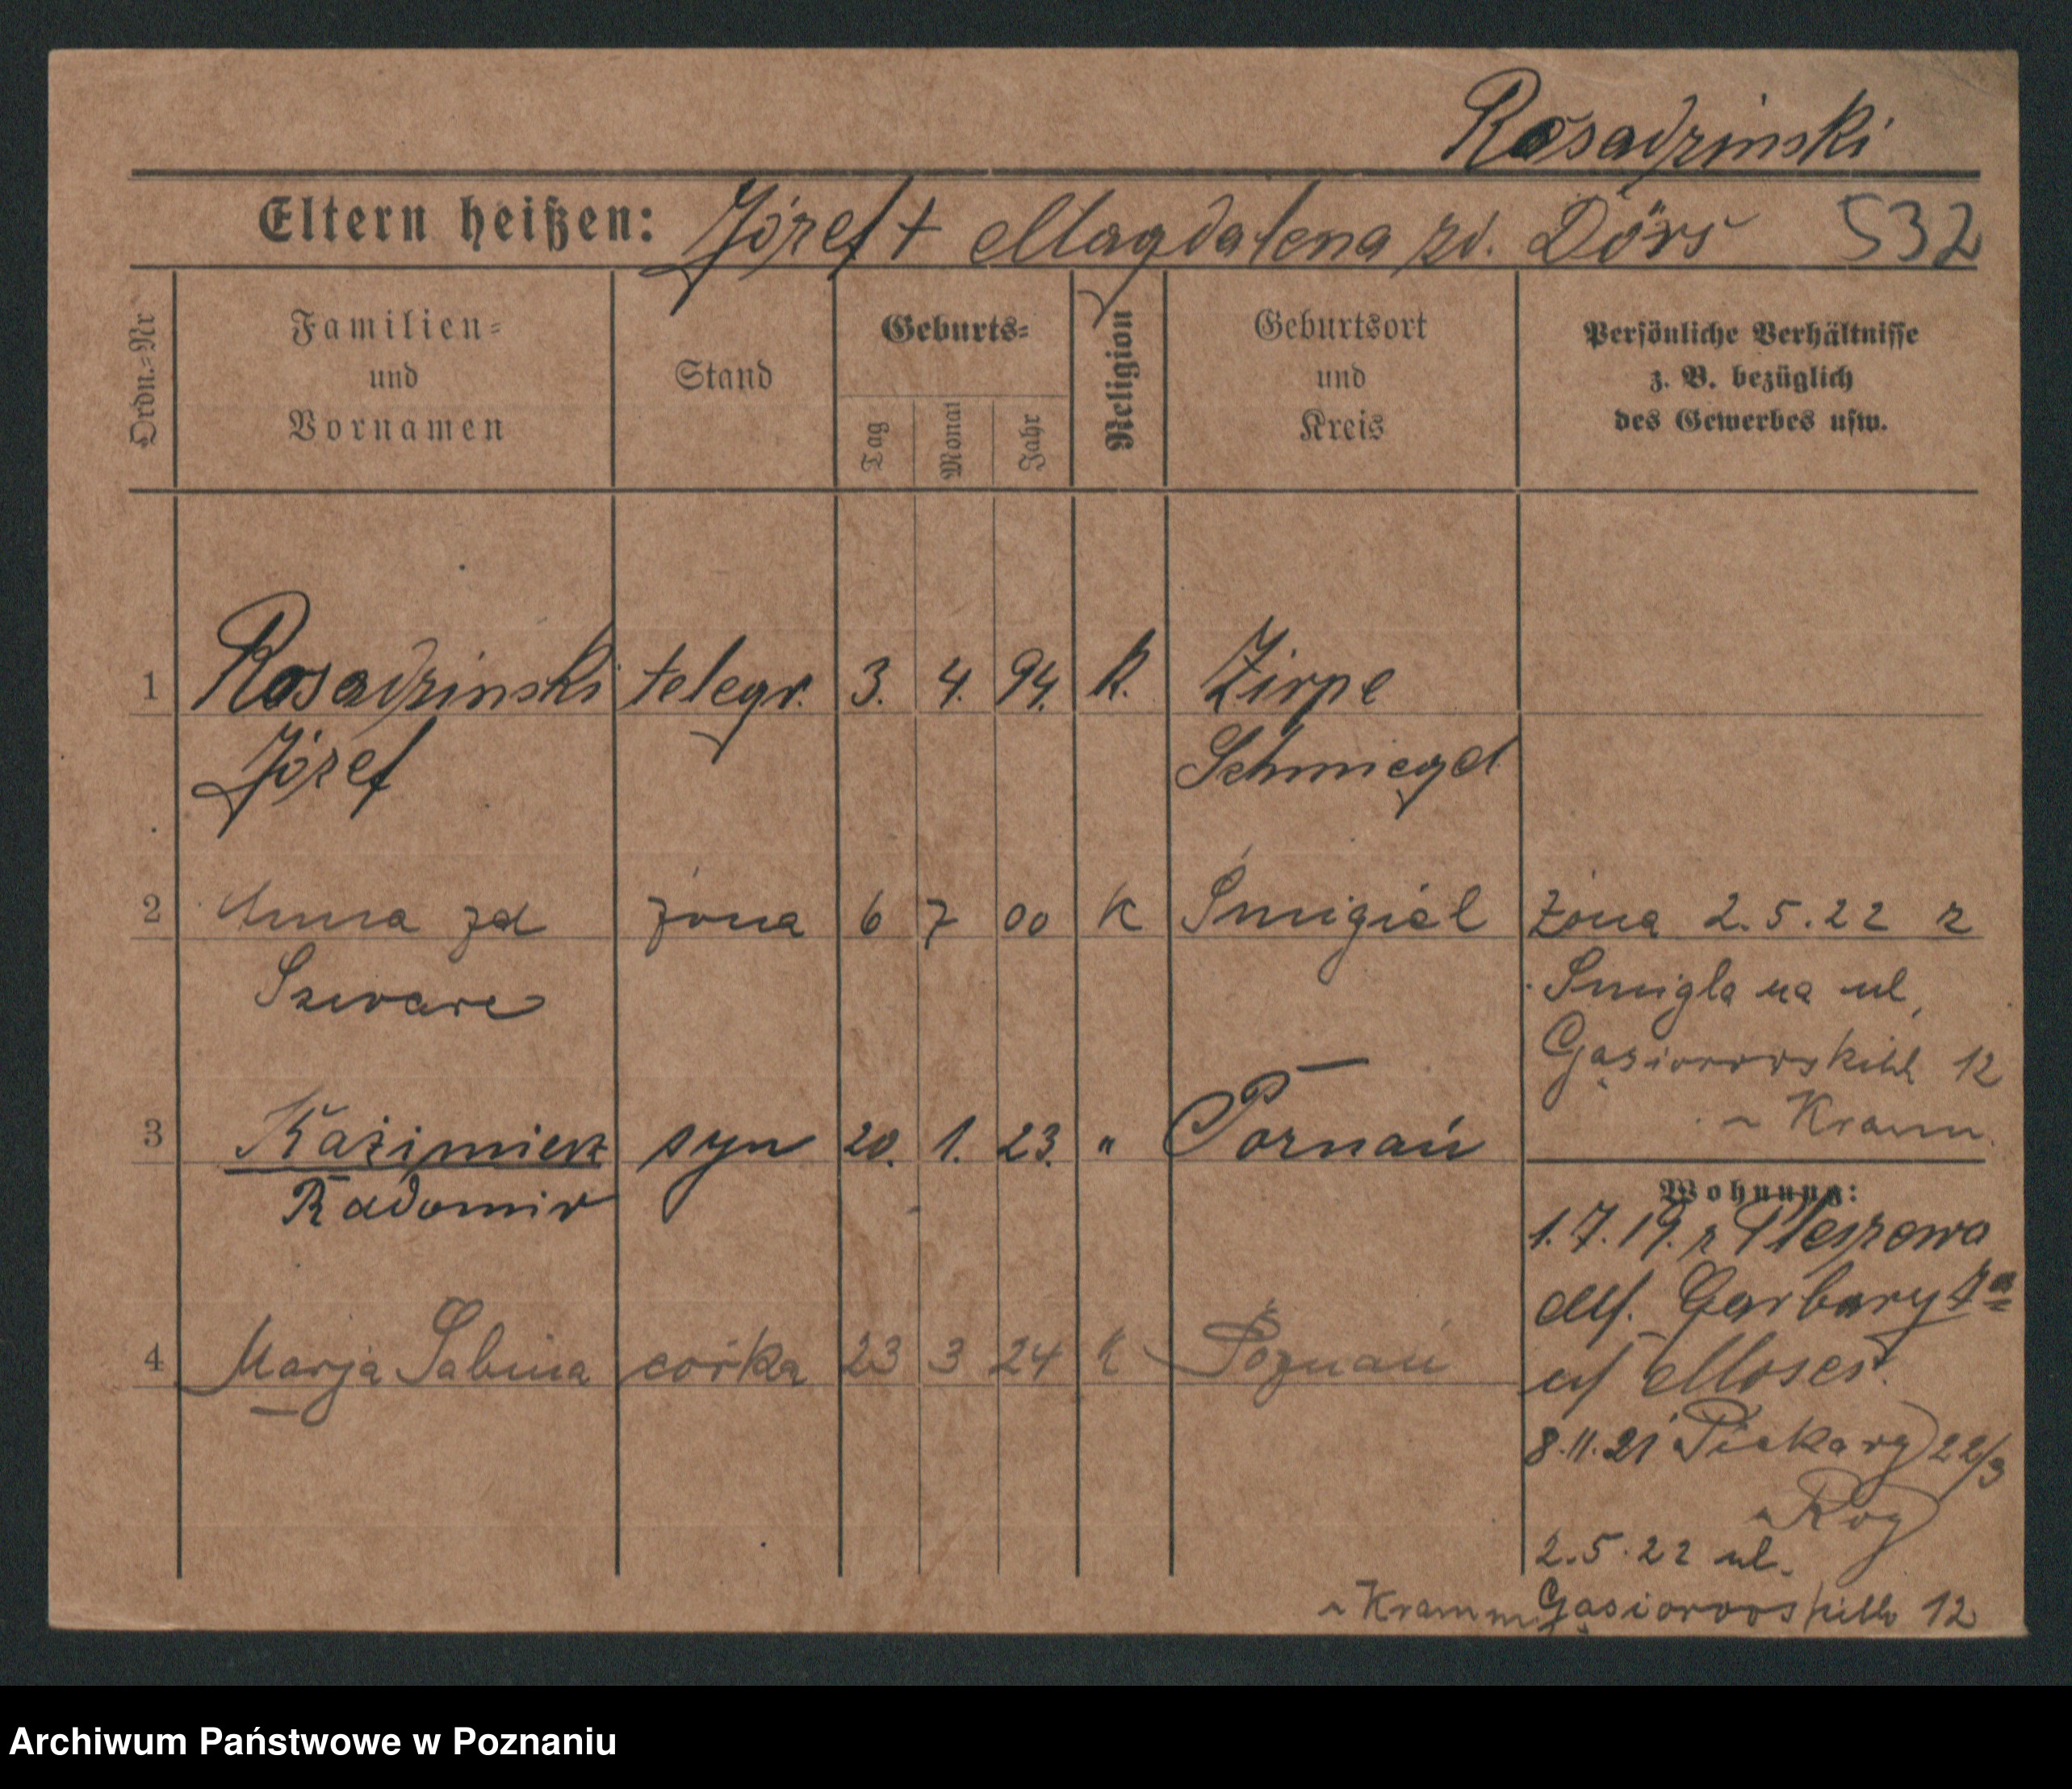 Rosadzinski
Eltern heißen: Józef + Magdalena zd. Dörs 532
Ordn.=Nr. Familien= und Vornamen Stand Geburts= Tag Monat Jahr Religion Geburtsort und Kreis Persönliche Verhältnisse z. B. bezüglich des Gewerbes usw.
1 Rosadzinski telegr. 3. 4. 94. k. Zirpe
Józef Schmiegel
2 Anna zd żona 6 7 00 k Śmigiel żona 2.5.22 z
Szwarc Śmigla na ul.
Gąsiorowskich 12
~ Kramm.
3 Kaźimierz syn 20. 1. 23. " Poznań
Radomir
Wohnung:
1.7.19. z Pleszewa
Garbary 4a
4 Marja Sabina córka 23 3 24 k Poznań
uf Moses.
8.11.21 Piekary 22/3
~ Roy
2.5.22 ul.
~ Kramm Gąsiorowskich 12
Archiwum Państwowe w Poznaniu